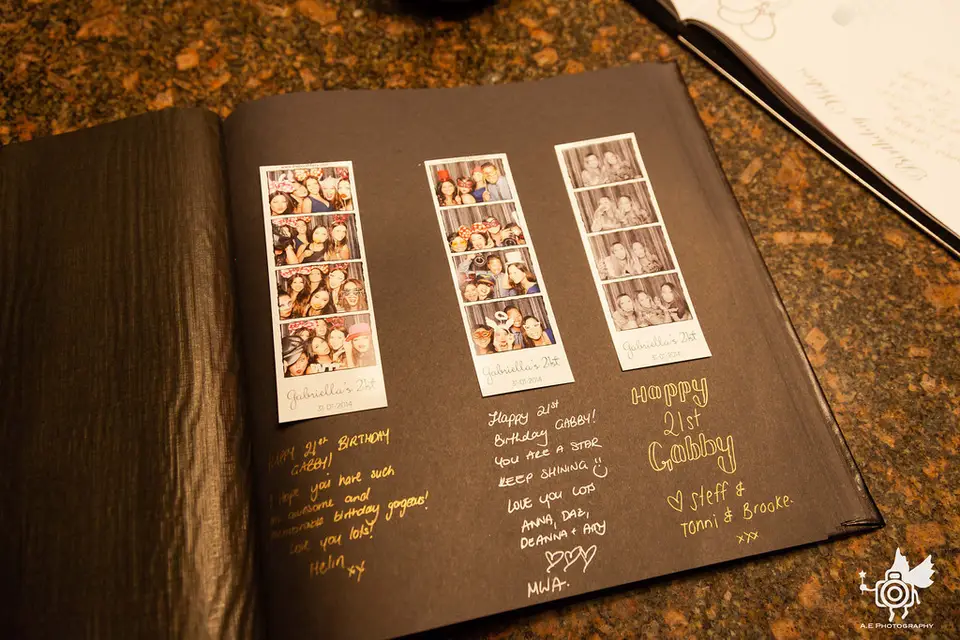 Gabriella's 21st
Gabriella's 21st
Gabriella's 21st
HAPPY 21st BIRTHDAY
GABBY!
I hope you have such
an awesome and
memorable birthday gorgeous!
Love you lots!
Helin xx
HAPPY 21st
Birthday GABBY!
YOU ARE A STAR
KEEP SHINING
LOVE YOU LOTS
ANNA, DAZ,
DEANNA + AMY
MWA.
Happy
21st
Gabby
Steff &
Tonni & Brooke.
xxx
Birthday
A.E PHOTOGRAPHY